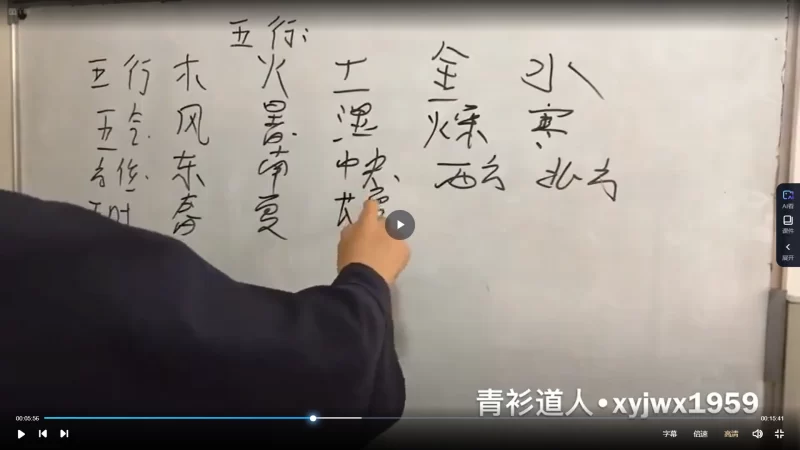 五行:
五行 木 火 土 金 水
五气 风 暑 湿 燥 寒
方位 东 南 中央 西方 北方
五时 春 夏 长夏
AI看
课件
展开
青衫道人•xyjwx1959
00:05:56
00:15:41
字幕 倍速 高清